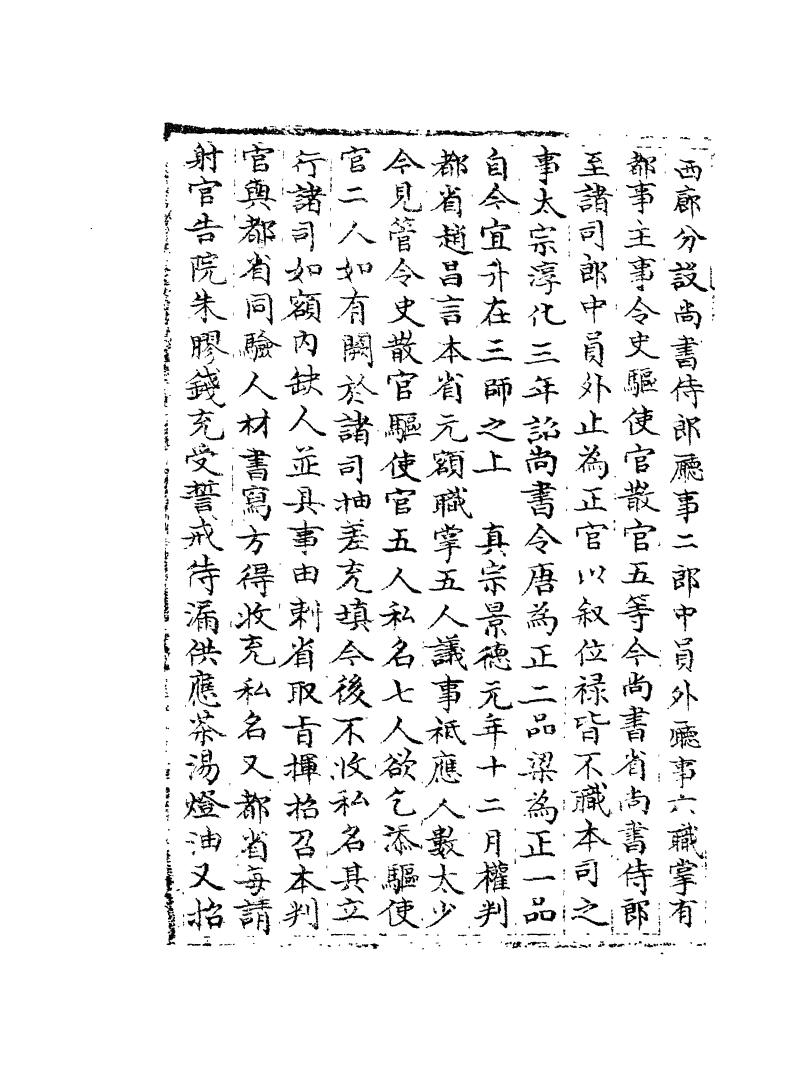 西廊分設尚書侍郎廳事二郎中員外廳事六職掌有
都事主事令史驅使官散官五等今尚書省尚書侍郎
至諸司郎中員外止為正官以叙位禄皆不職本司之
事太宗淳化三年詔尚書令唐為正二品梁為正一品
自今宜升在三師之上　真宗景德元年十二月權判
都省趙昌言本省元額職掌五人議事祗應人數太少
今見管令史散官驅使官五人私名七人欲乞添驅使
官二人如有闕於諸司抽差充填今後不收私名其立
行諸司如額内缺人並具事由剌省取旨揮招召本判
官與都省同驗人材書寫方得收充私名又都省每請
射官告院朱膠錢充受誓戒待漏供應茶湯燈油又招